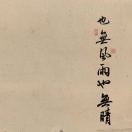 也無風雨也無晴